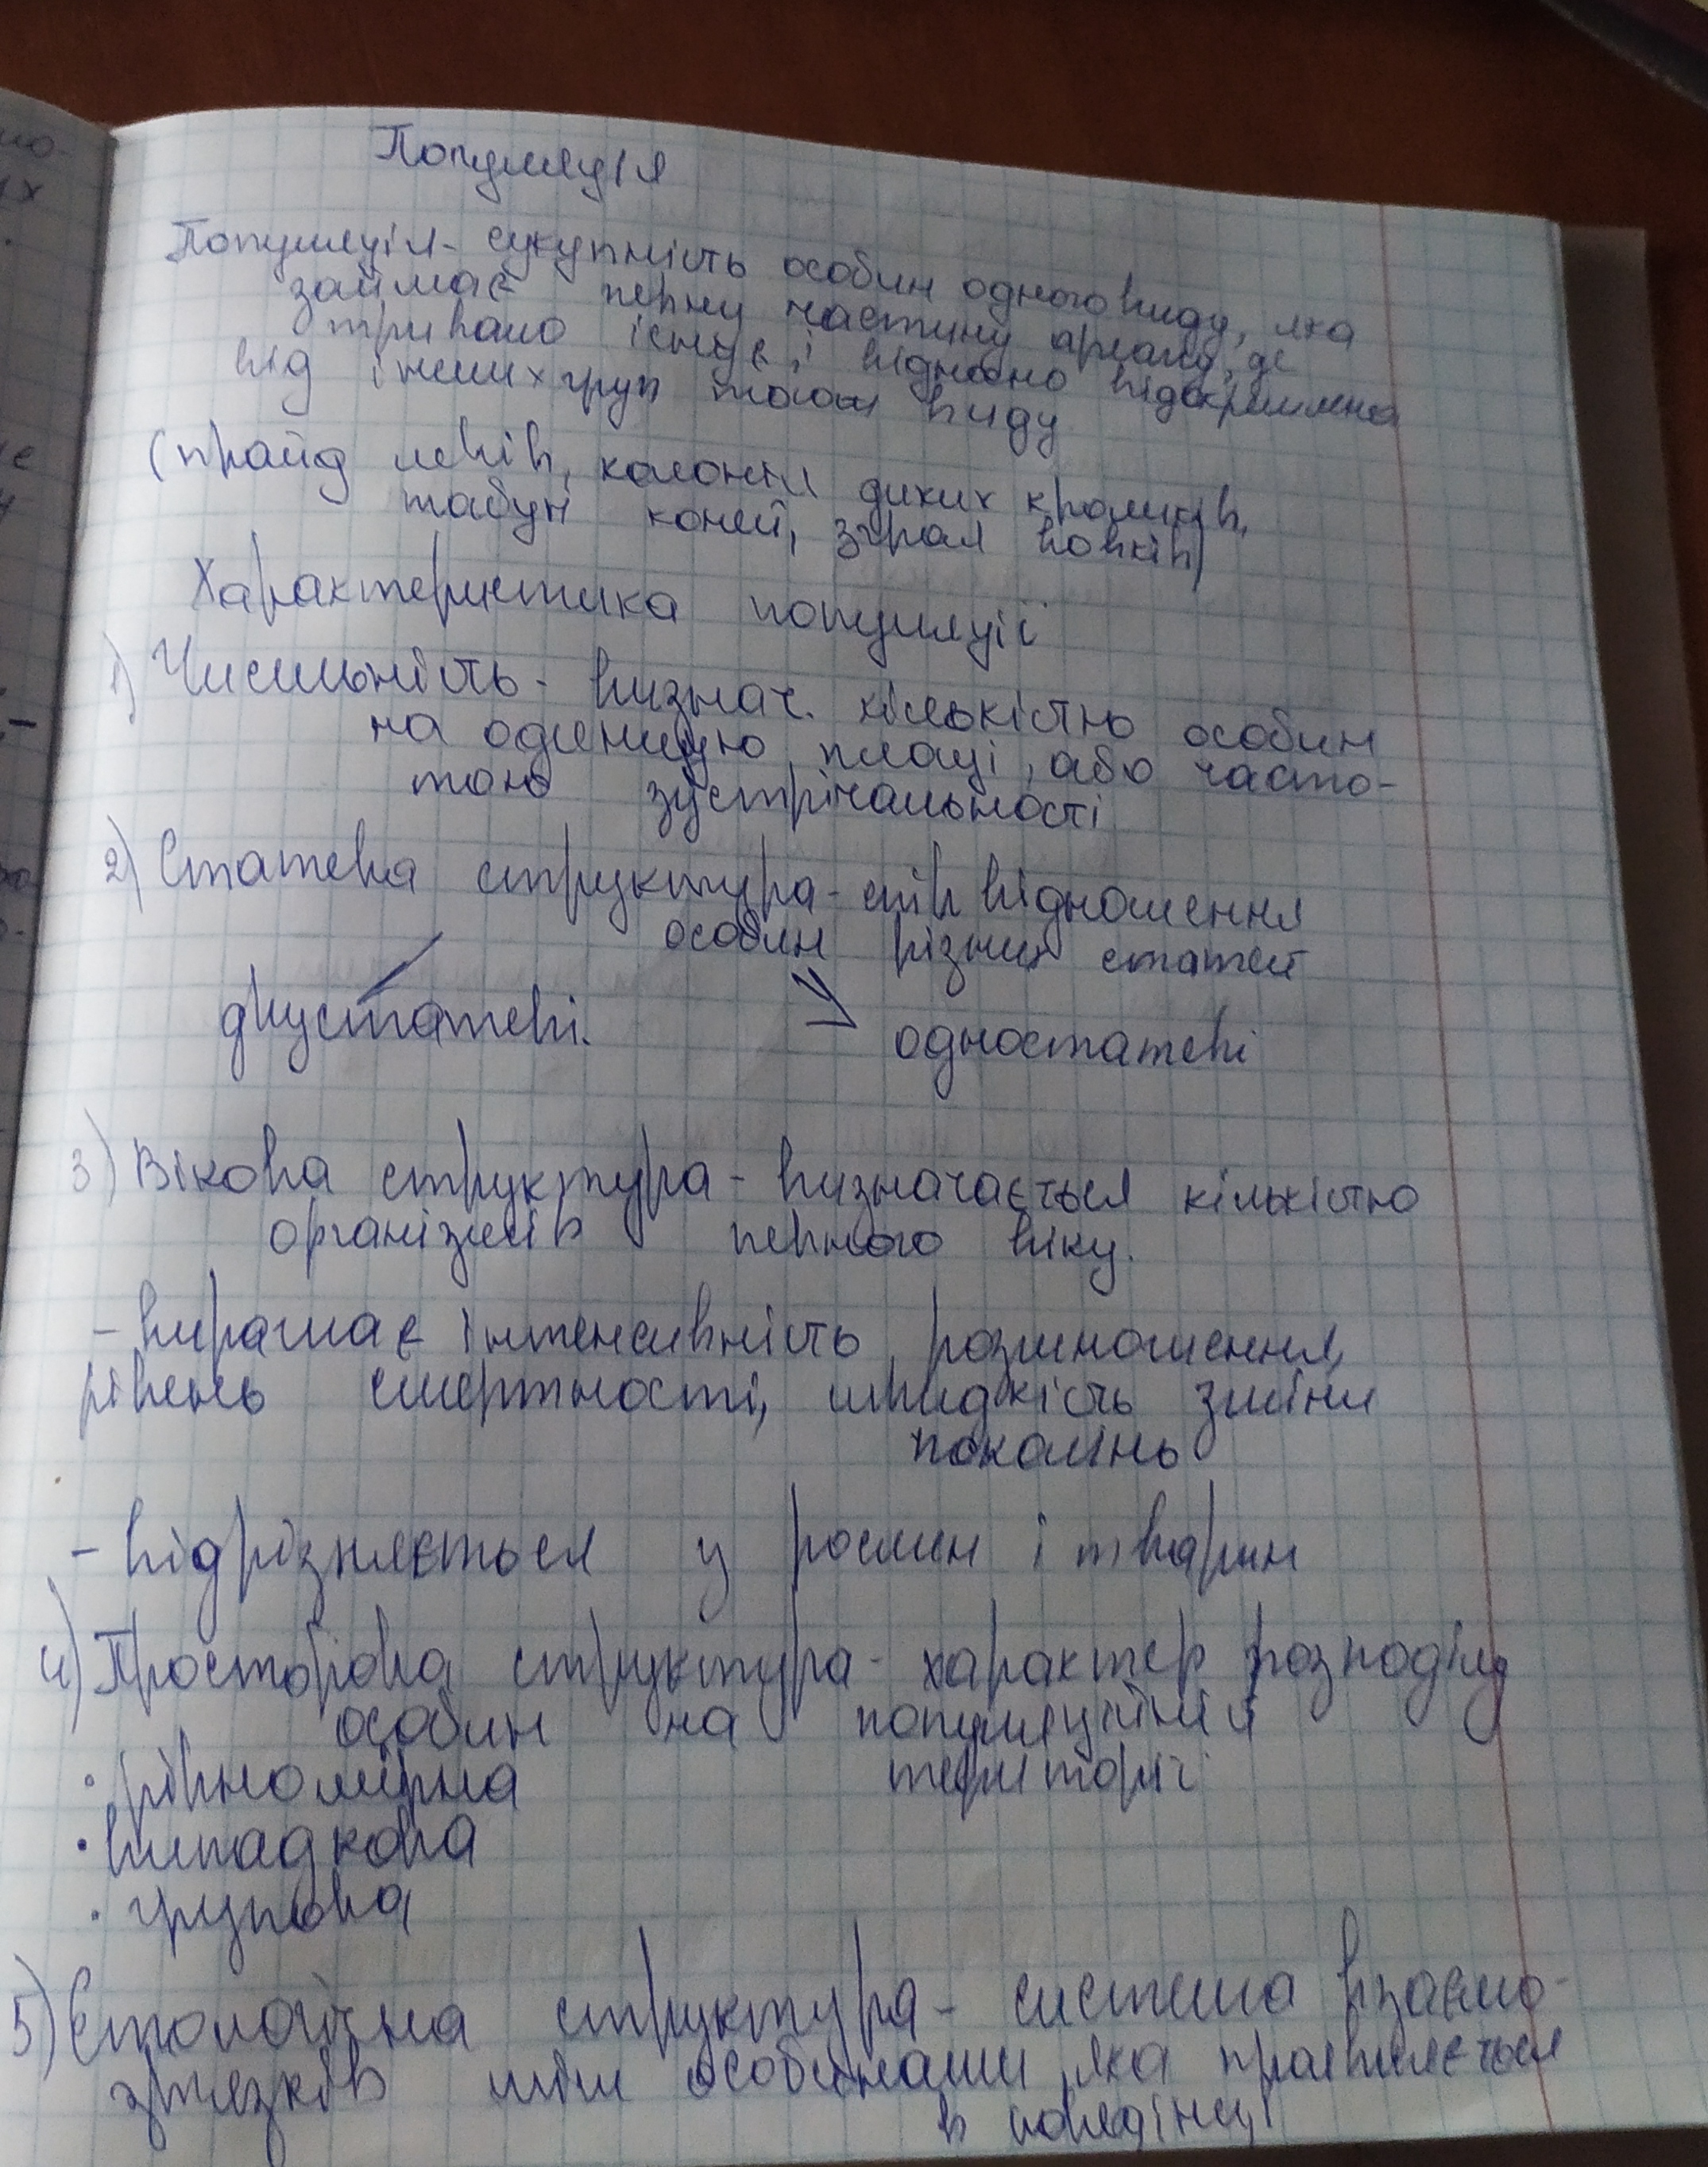 Популяція
Популяція - сукупність особин одного виду, яка
займає певну частину ареалу, де
тривало існує, і відносно відокремлена
від інших груп того ж виду
(прайд левів, колонія диких кроликів,
табун коней, зграя вовків)
Характеристика популяції
1) Чисельність - визнач. кількістю особин
на одиницю площі, або часто-
тою зустрічальності
2) Статева структура - спів відношення
особин різних статей
двустатеві. одностатеві
3) Вікова структура - визначається кількістю
організмів певного віку.
- виражає інтенсивність розмноження,
рівень смертності, швидкість зміни
поколінь
- відрізняється у рослин і тварин
4) Просторова структура - характер розподілу
особин на популяційній
• рівномірна території
• випадкова
• групова
5) Етологічна структура - система взаємо-
зв'язків між особинами, яка проявляється
в поведінці